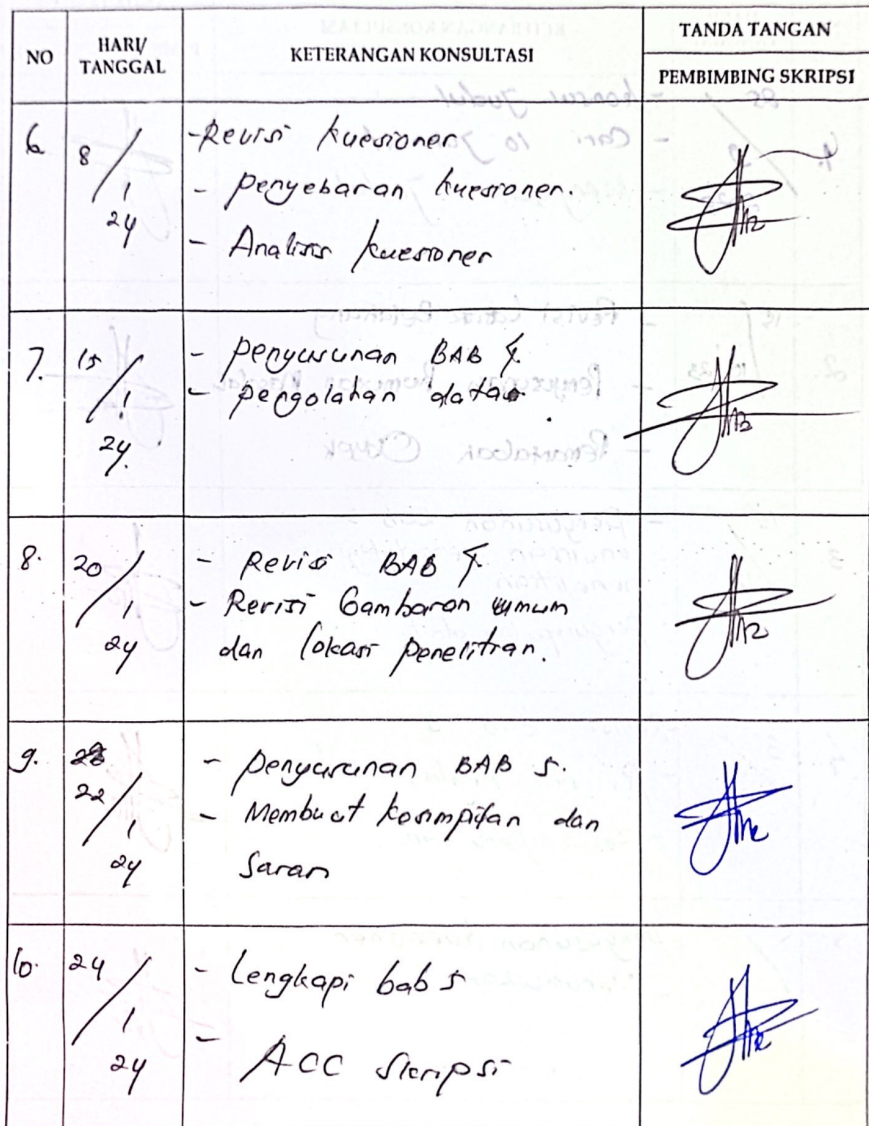 NO
HARI/ TANGGAL
KETERANGAN KONSULTASI
TANDA TANGAN
PEMBIMBING SKRIPSI
6. 8/1 24
- Revisi kuesioner
- penyebaran kuesioner.
- Analisis kuesioner
7. 15/1 24.
- penyusunan BAB
- pengolahan data
8. 20/1 24
- Revisi BAB
- Revisi Gambaran umum
dan lokasi penelitian.
9. 22/1 24
- penyusunan BAB 5.
- Membuat kesimpulan dan
Saran
10. 24/1 24
- Lengkapi bab 5
- ACC Skripsi